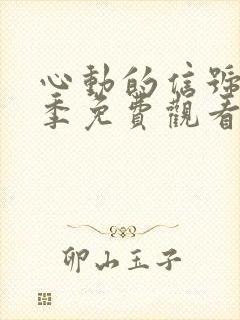 心動的信號
季免費觀看
卯山玉子